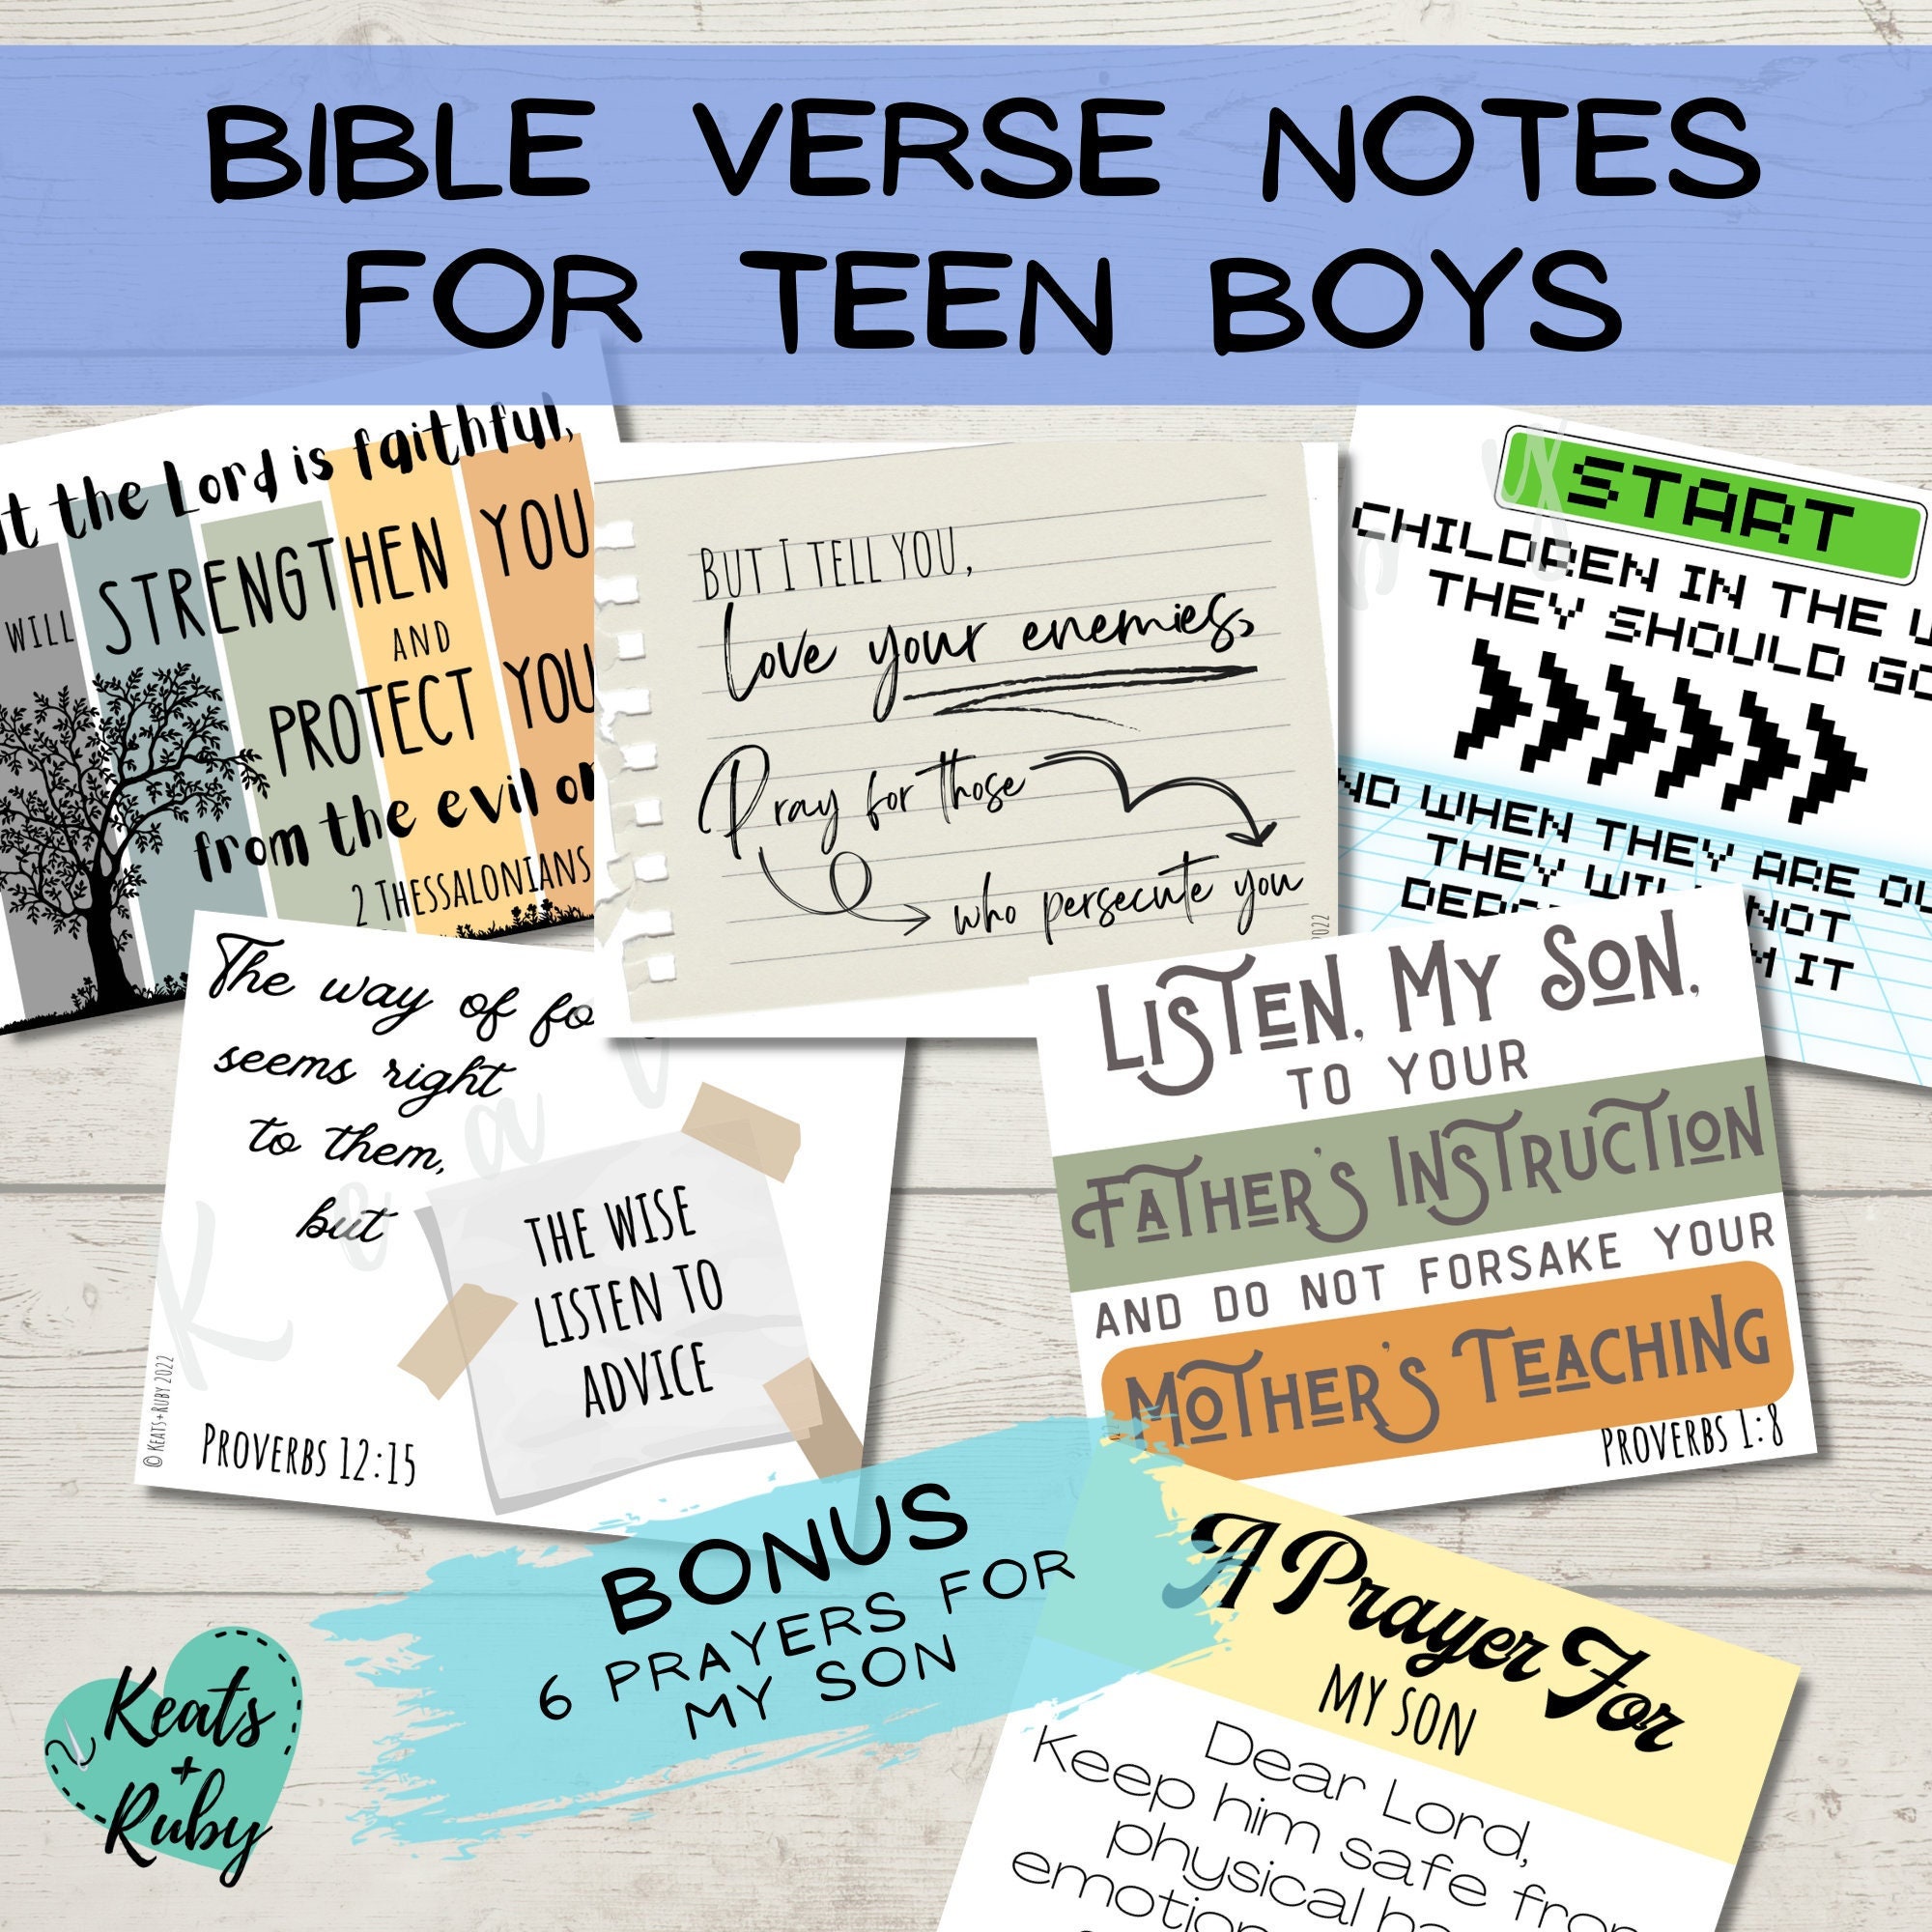 BIBLE VERSE NOTES
FOR TEEN BOYS
the Lord is faithful,
WILL STRENGTHEN YOU
AND
PROTECT YOU
from the evil
2 THESSALONIANS
BUT I TELL YOU,
Love your enemies,
Pray for those
who persecute you
2022
START
CHILDREN IN THE
THEY SHOULD GO
WHEN THEY ARE
THEY NOT
IT
The way of
seems right
to them,
but
THE WISE
LISTEN TO
ADVICE
PROVERBS 12:15
© KEATS+RUBY 2022
LISTEN, MY SON,
TO YOUR
FATHER'S INSTRUCTION
AND DO NOT FORSAKE YOUR
MOTHER'S TEACHING
PROVERBS 1:8
BONUS
6 PRAYERS FOR
MY SON
A Prayer For
MY SON
Dear Lord,
Keep him safe
physical
Keats
+
Ruby